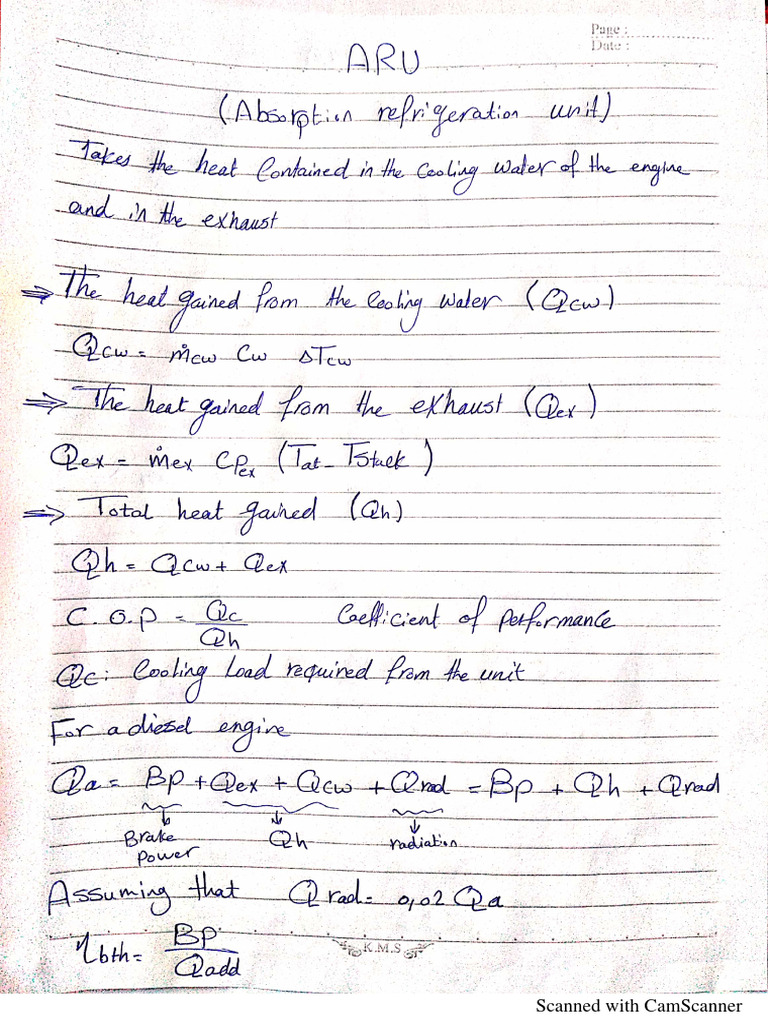 Page :
Date :
ARU
(Absorption refrigeration unit)
Takes the heat Contained in the Cooling water of the engine
and in the exhaust
⇒ The heat gained from the Cooling water (Qcw)
Qcw = ṁcw Cw ΔTcw
⇒ The heat gained from the exhaust (Qex)
Qex = ṁex CPex (Tat - Tstack)
⇒ Total heat gained (Qh)
Qh = Qcw + Qex
C.O.P = Qc / Qh Coefficient of performance
Qc: Cooling Load required from the unit
For a diesel engine
Qa = Bp + Qex + Qcw + Qrad = Bp + Qh + Qrad
Brake Power Qh radiation
Assuming that Qrad = 0,02 Qa
ηbth = BP / Qadd
K.M.S
Scanned with CamScanner